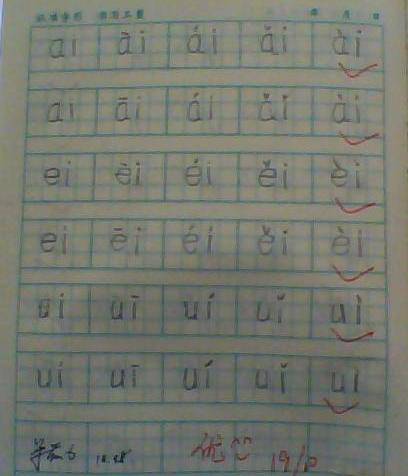 年 月 日
ai āi ái ǎi ài
ai āi ái ǎi ài
ei ēi éi ěi èi
ei ēi éi ěi èi
ui uī uí uǐ uì
ui uī uí uǐ uì
10.28 优 19/10